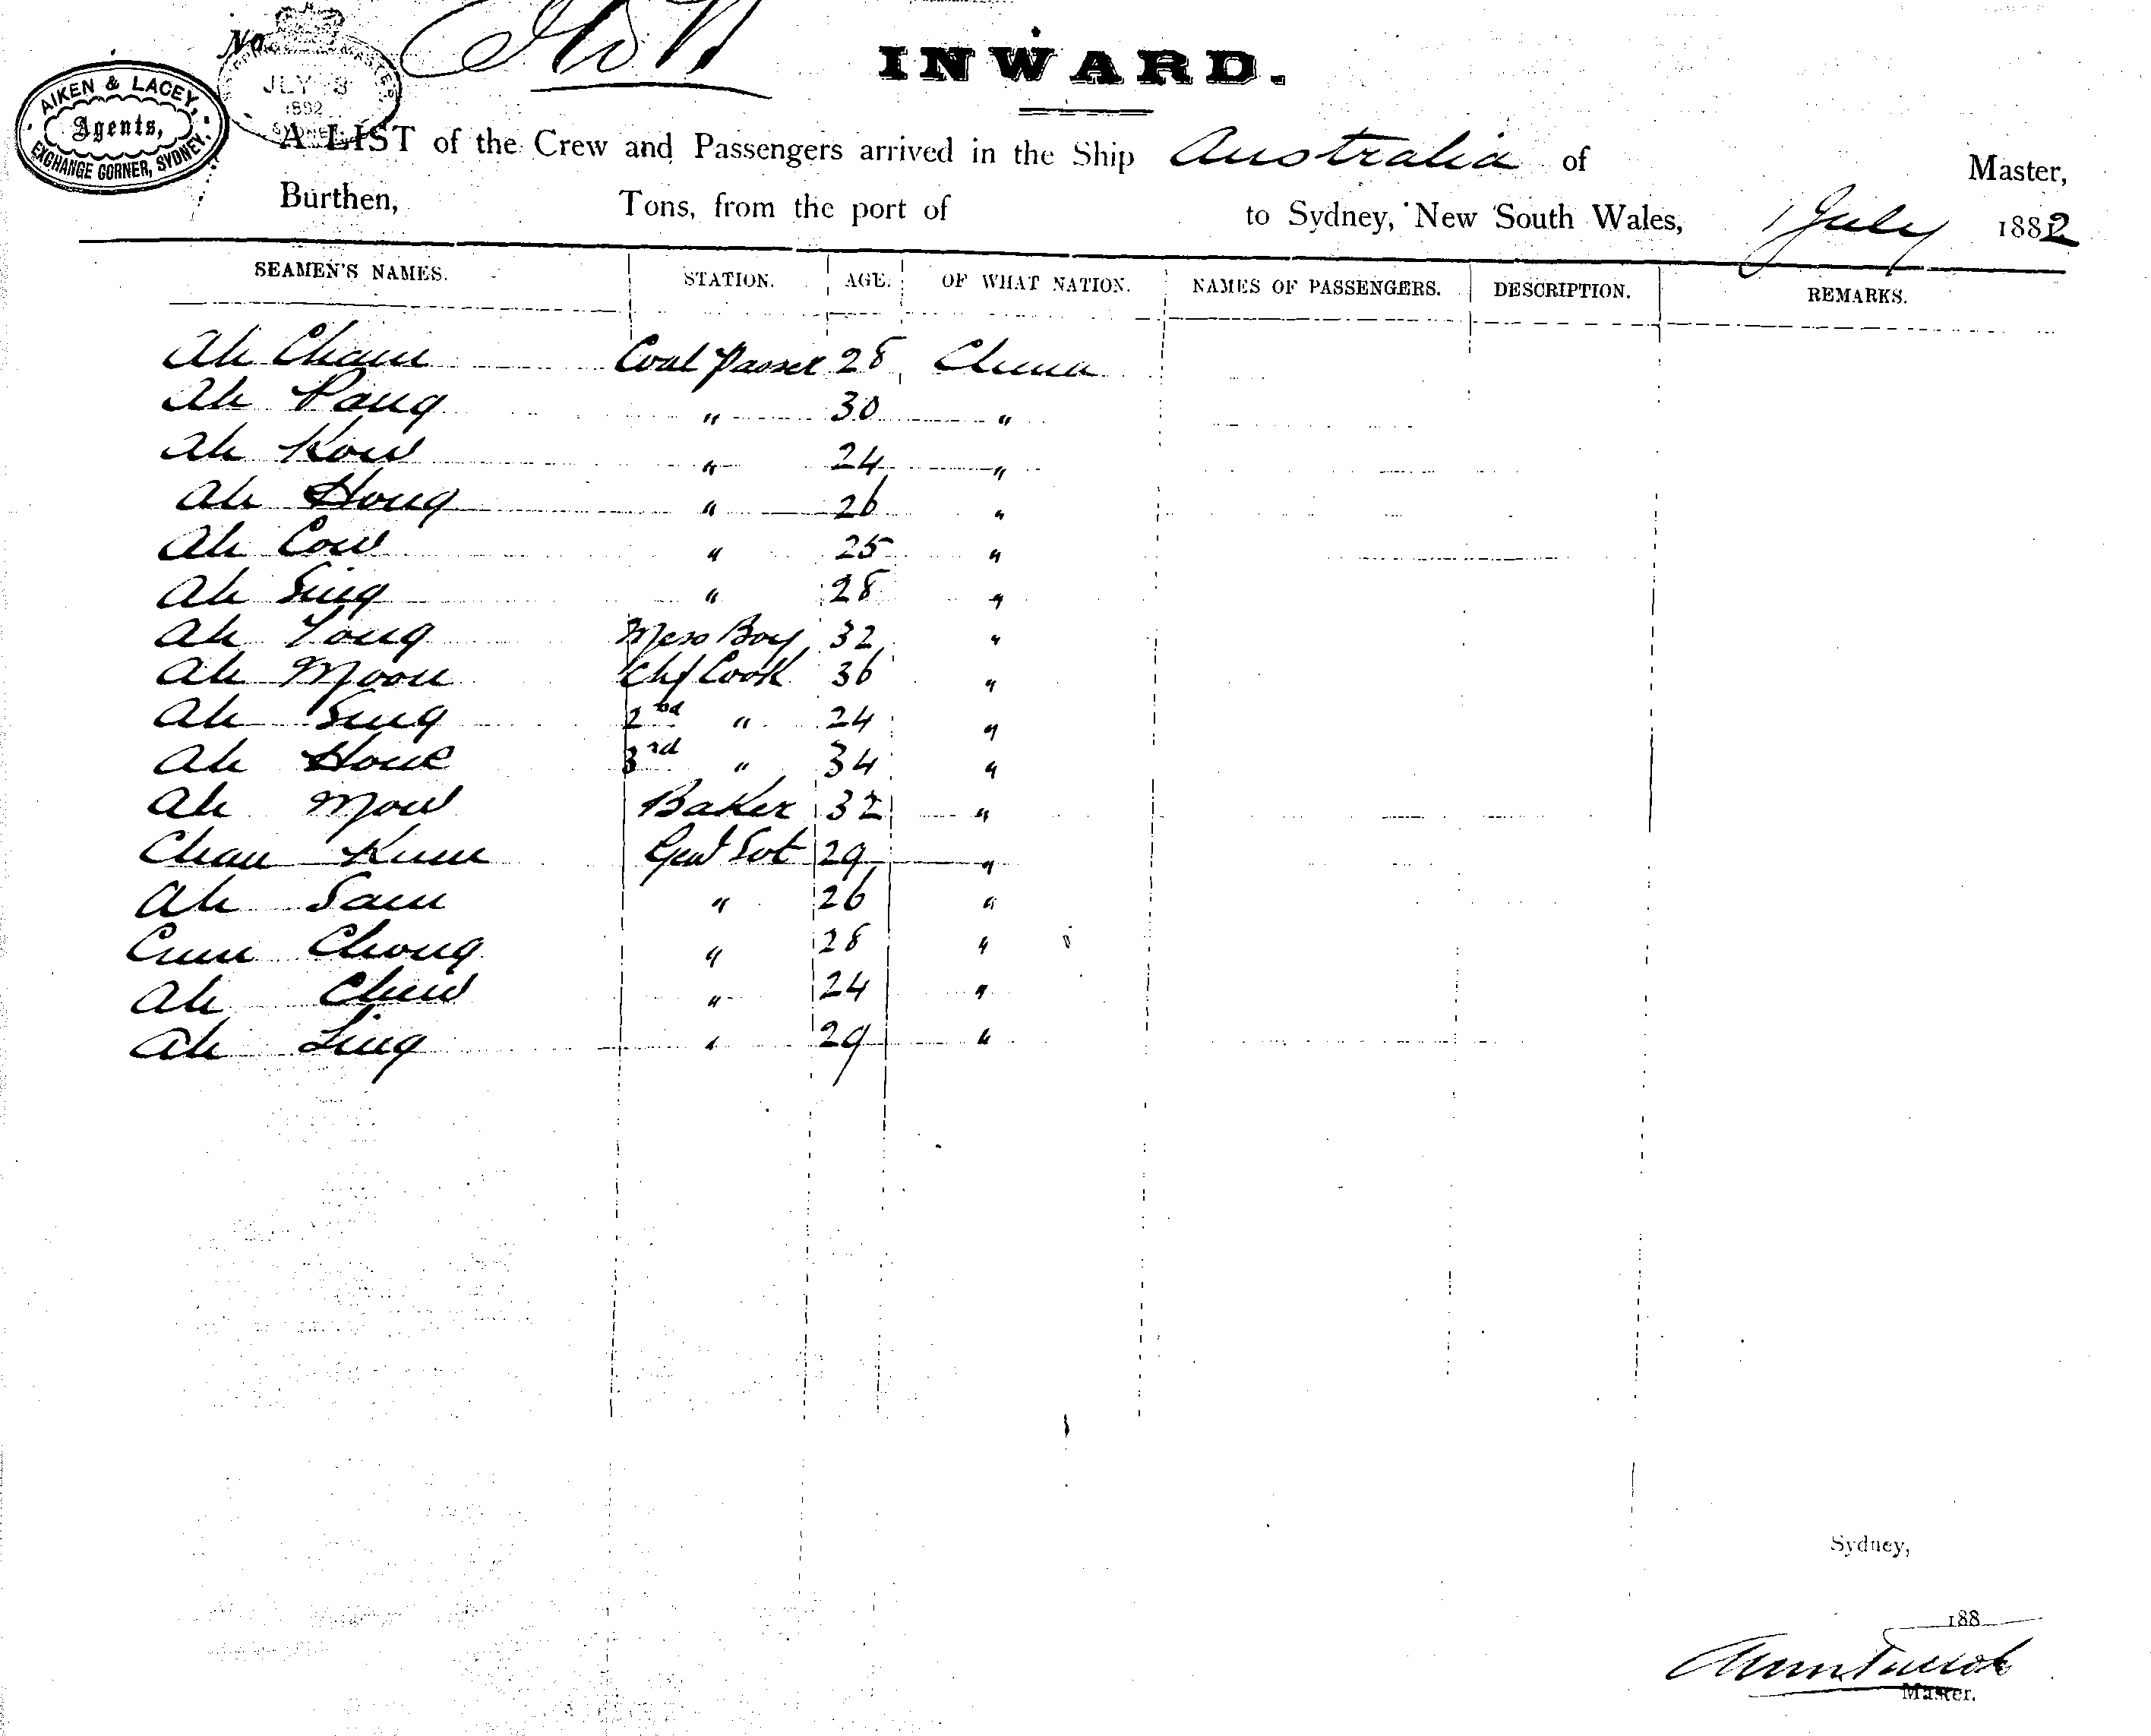 No
INWARD.
AIKEN & LACEY,
Agents,
EXCHANGE CORNER, SYDNEY.
JLY
SYDNEY
A LIST of the Crew and Passengers arrived in the Ship Australia of Master,
Burthen, Tons, from the port of to Sydney, New South Wales, 1 July 1882
SEAMEN'S NAMES. STATION. AGE. OF WHAT NATION. NAMES OF PASSENGERS. DESCRIPTION. REMARKS.
Ah Cham Coal Passer 28 China
Ah Pang " 30 "
Ah Kow " 24 "
Ah Hong " 26 "
Ah Cow " 25 "
Ah Sing " 28 "
Ah Yong Mess Boy 32 "
Ah Moon Chf Cook 36 "
Ah Sung 2nd " 24 "
Ah How 3rd " 34 "
Ah Mow Baker 32 "
Chan Kum 29 "
Ah Sam " 26 "
Cum Chong " 28 "
Ah Chew " 24 "
Ah Ling " 29 "
Sydney,
188
Master.